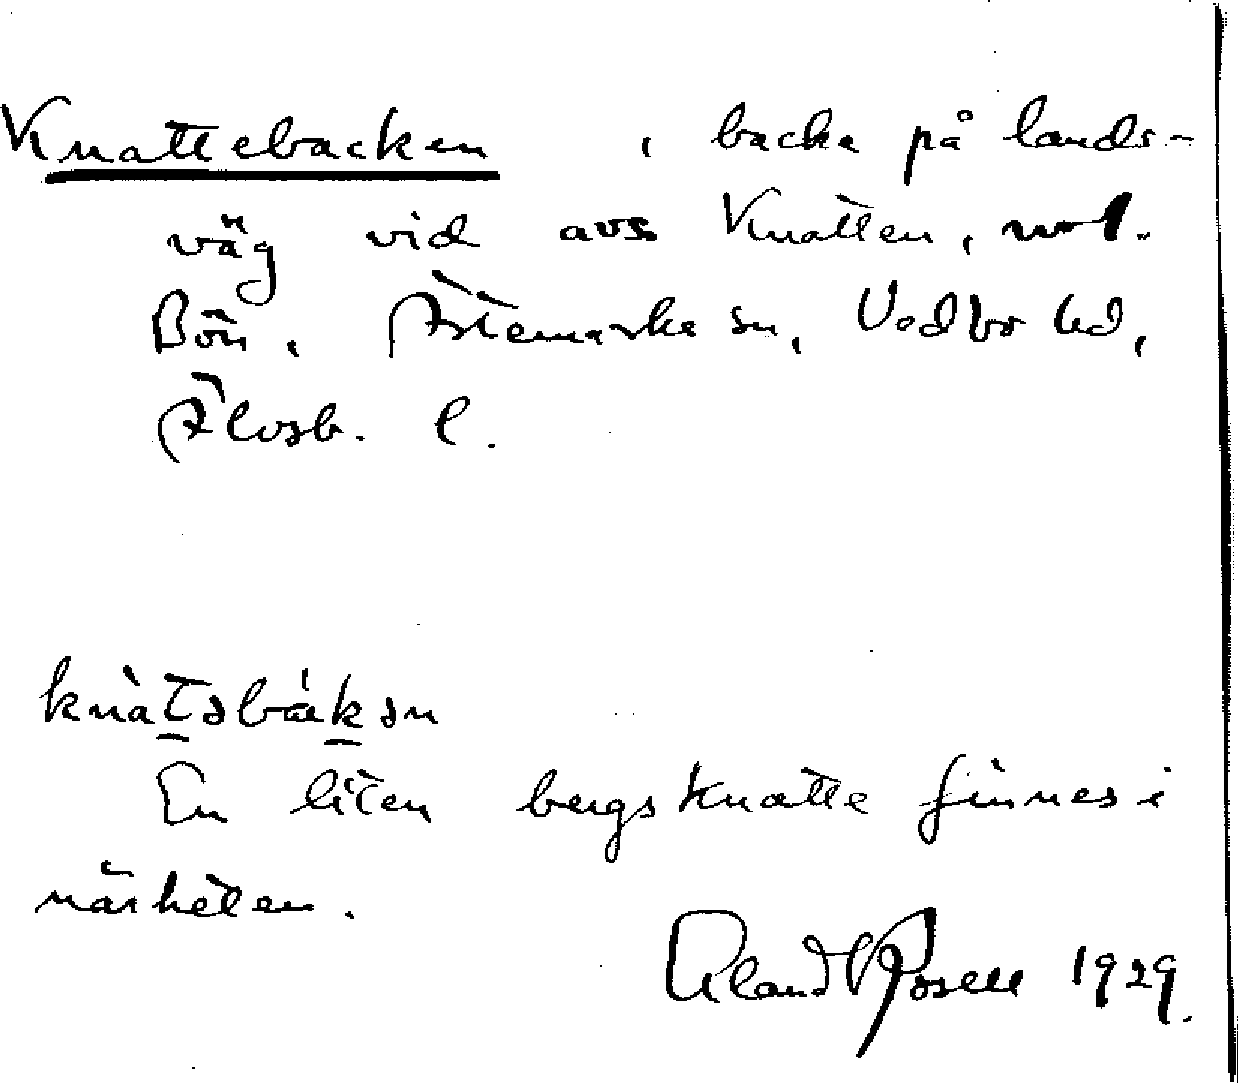 Knattebacken, backe på lands-
väg vid avs Knatten,
Bön, Ärtemarks sn, Vedbo hd,
Älvsb. l.
knàt̠əbák̠ən
En liten bergsknatte finnes i
närheten.
Rosell 1929.